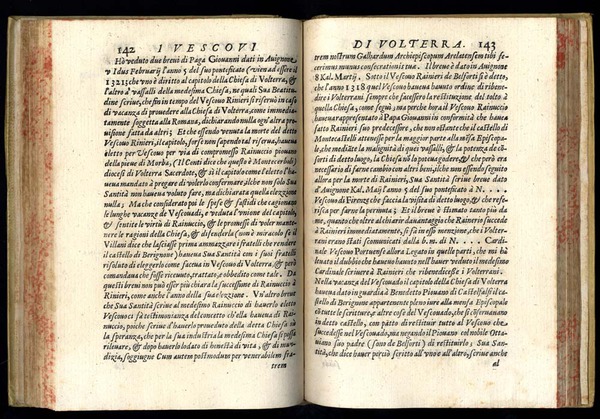 142 I VESCOVI
Hò veduto due breui di Papa Giouanni dati in Auignone
V Idus Februarij l'anno 5 del suo pontificato (vien ad essere il
1321) che vno è diritto al capitolo della Chiesa di Volterra, &
l'altro à vassalli della medesima Chiesa, ne quali Sua Beatitu-
dine scriue, che fin in tempo del Vescouo Rinieri si riseruò in caso
di vacanza di prouedere alla Chiesa di Volterra, come immediata-
mente soggetta alla Romana, dichiarando nulla ogn'altra proui-
sione fatta da altri; Et che essendo venuta la morte del detto
Vescouo Rinieri, il capitolo, forse non sapendo tal riserua, haueua
eletto per Vescouo per via di compromesso Rainuccio piouano
della pieue di Morba, (Il Conti dice che questo è Montecerboli)
diocesi di Volterra Sacerdote, & à il capitolo come l'eletto l'ha-
ueua mandato à pregare di volerlo confermare, ilche non solo Sua
Santità non haueua voluto fare, ma dichiarata quella elezzione
nulla; Ma che considerato poi le spese & fastidi che cagionano
le lunghe vacanze de Vescouadi, e veduta l'vnione del capitolo,
& sentite le virtù di Rainuccio, & le promesse di voler mante-
nere le ragioni della Chiesa, & difenderla (onde miracolo se il
Villani dice che lasciasse prima ammazzare i fratelli che rendere
il castello di Berignone) haueua Sua Santità con i suoi fratelli
risoluto di eleggerlo come faceua in Vescouo di Volterra, & però
comandaua che fosse riceuuto, trattato, e obbedito come tale. Da
questi breui non può esser più chiara la successione di Rainuccio à
Rinieri, come anche l'anno della sua elezzione. Vi è altro breue
che Sua Santità scriue al medesimo Rainuccio di hauerlo eletto
Vescouo: ci fà testimonianza del concetto ch'ella haueua di Rai-
nuccio, poiche scriue d'hauerlo proueduto della detta Chiesa có
la speranza, che per la sua industria la medesima Chiesa si possa
rileuare, & dopo hauerlo lodato di honestà di vita, & di mun-
dizia, soggiugne Cum autem postmodum per venerabilem fra-
trem
DI VOLTERRA. 143
trem nostrum Galhardum Archiepiscopum Arelatensem tibi fe-
cerimus munus consecrationis tuæ. Il breue è dato in Auignone
8 Kal. Martij. Sotto il Vescouo Rainieri de Belforti s'è detto,
che l'anno 1318 quel Vescouo haueua hauuto ordine di ribene-
dire i Volterrani sempre che facessero la restituzione del tolto à
quella Chiesa, come seguì; ma perche hora il Vescouo Rainuccio
haueua rappresentato à Papa Giouanni in conformità che haueua
fatto Rainieri suo predecessore, che non ostante che il castello di
Montecastelli attenesse per la maggior parte alla mensa Episcopa-
le, che meditate la malignità di quei vassalli, & la potenza de cõ-
sorti di detto luogo, la Chiesa nõ lo poteua godere, & che però era
necessario di farne cambio con altri beni, ilche non essendo seguito
allora per la morte di Rainieri, Sua Santità scriue breue dato
d'Auignone Kal. Maij l'anno 5 del suo ponteficato à N....
Vescouo di Firenze che faccia la visita di detto luogo, & che refe-
risca per farne la permuta; Et il breue è stimato tanto più da
me, quanto che oltre al chiarire dauantaggio che Rainerio succede
à Rainieri immediatamente, si fà in esso menzione, che i Volter-
rani erano stati comunicati dalla b. m. di N.... Cardi-
nale Vescouo Portuense allora Legato in quelle parti, che mi hà
leuato il dubbio che haueuo hauuto nell'hauer veduto il medesimo
Cardinale scriuere à Rainieri che ribenedicesse i Volterrani.
Nella vacanza del Vescouado il capitolo della Chiesa di Volterra
haueua dato in guardia à Benedetto Piouano di Castelfalfi il ca-
stello di Berignone appartenente pleno iure alla mensa Episcopale
có tutte le scritture, e altre cose del Vescouado, che si cõseruauano
in detto castello, con patto di restituir tutto al Vescouo che
succedesse nel Vescouado, ma negando il Piouano col nobile Otta-
uiano suo padre (sono de Belforti) di restituirlo; Sua Santi-
tà, che dice hauer perciò scritto all'vno, e all'altro, scriue anche
al